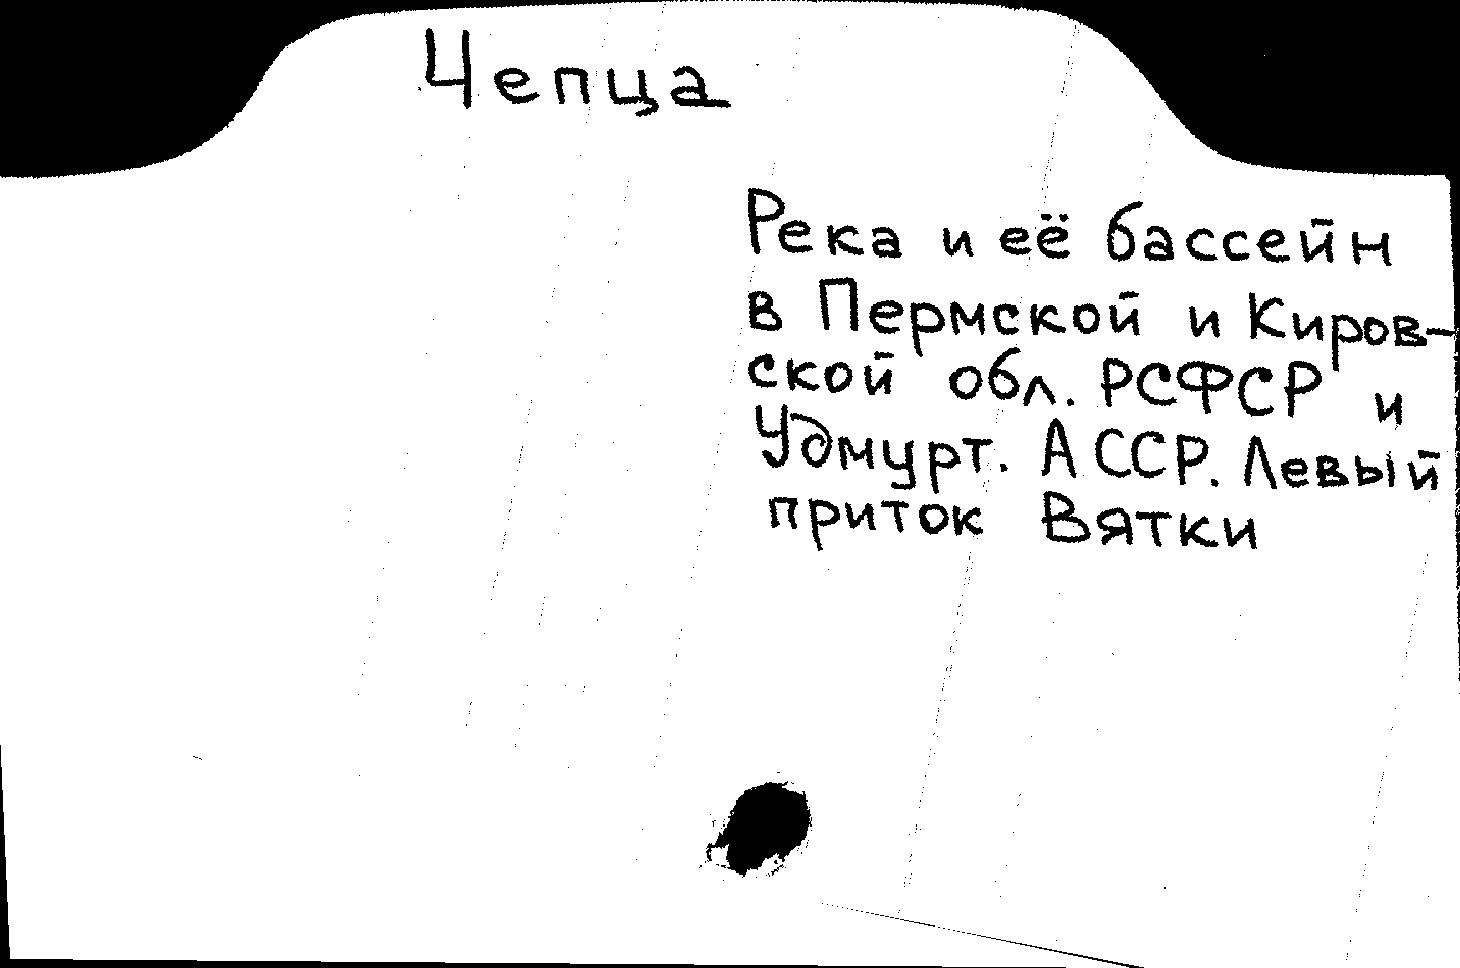 Чепца
Река и её бассейн
в Пермской и Киров-
ской обл. РСФСР и
Удмурт. АССР. Левый
приток Вятки